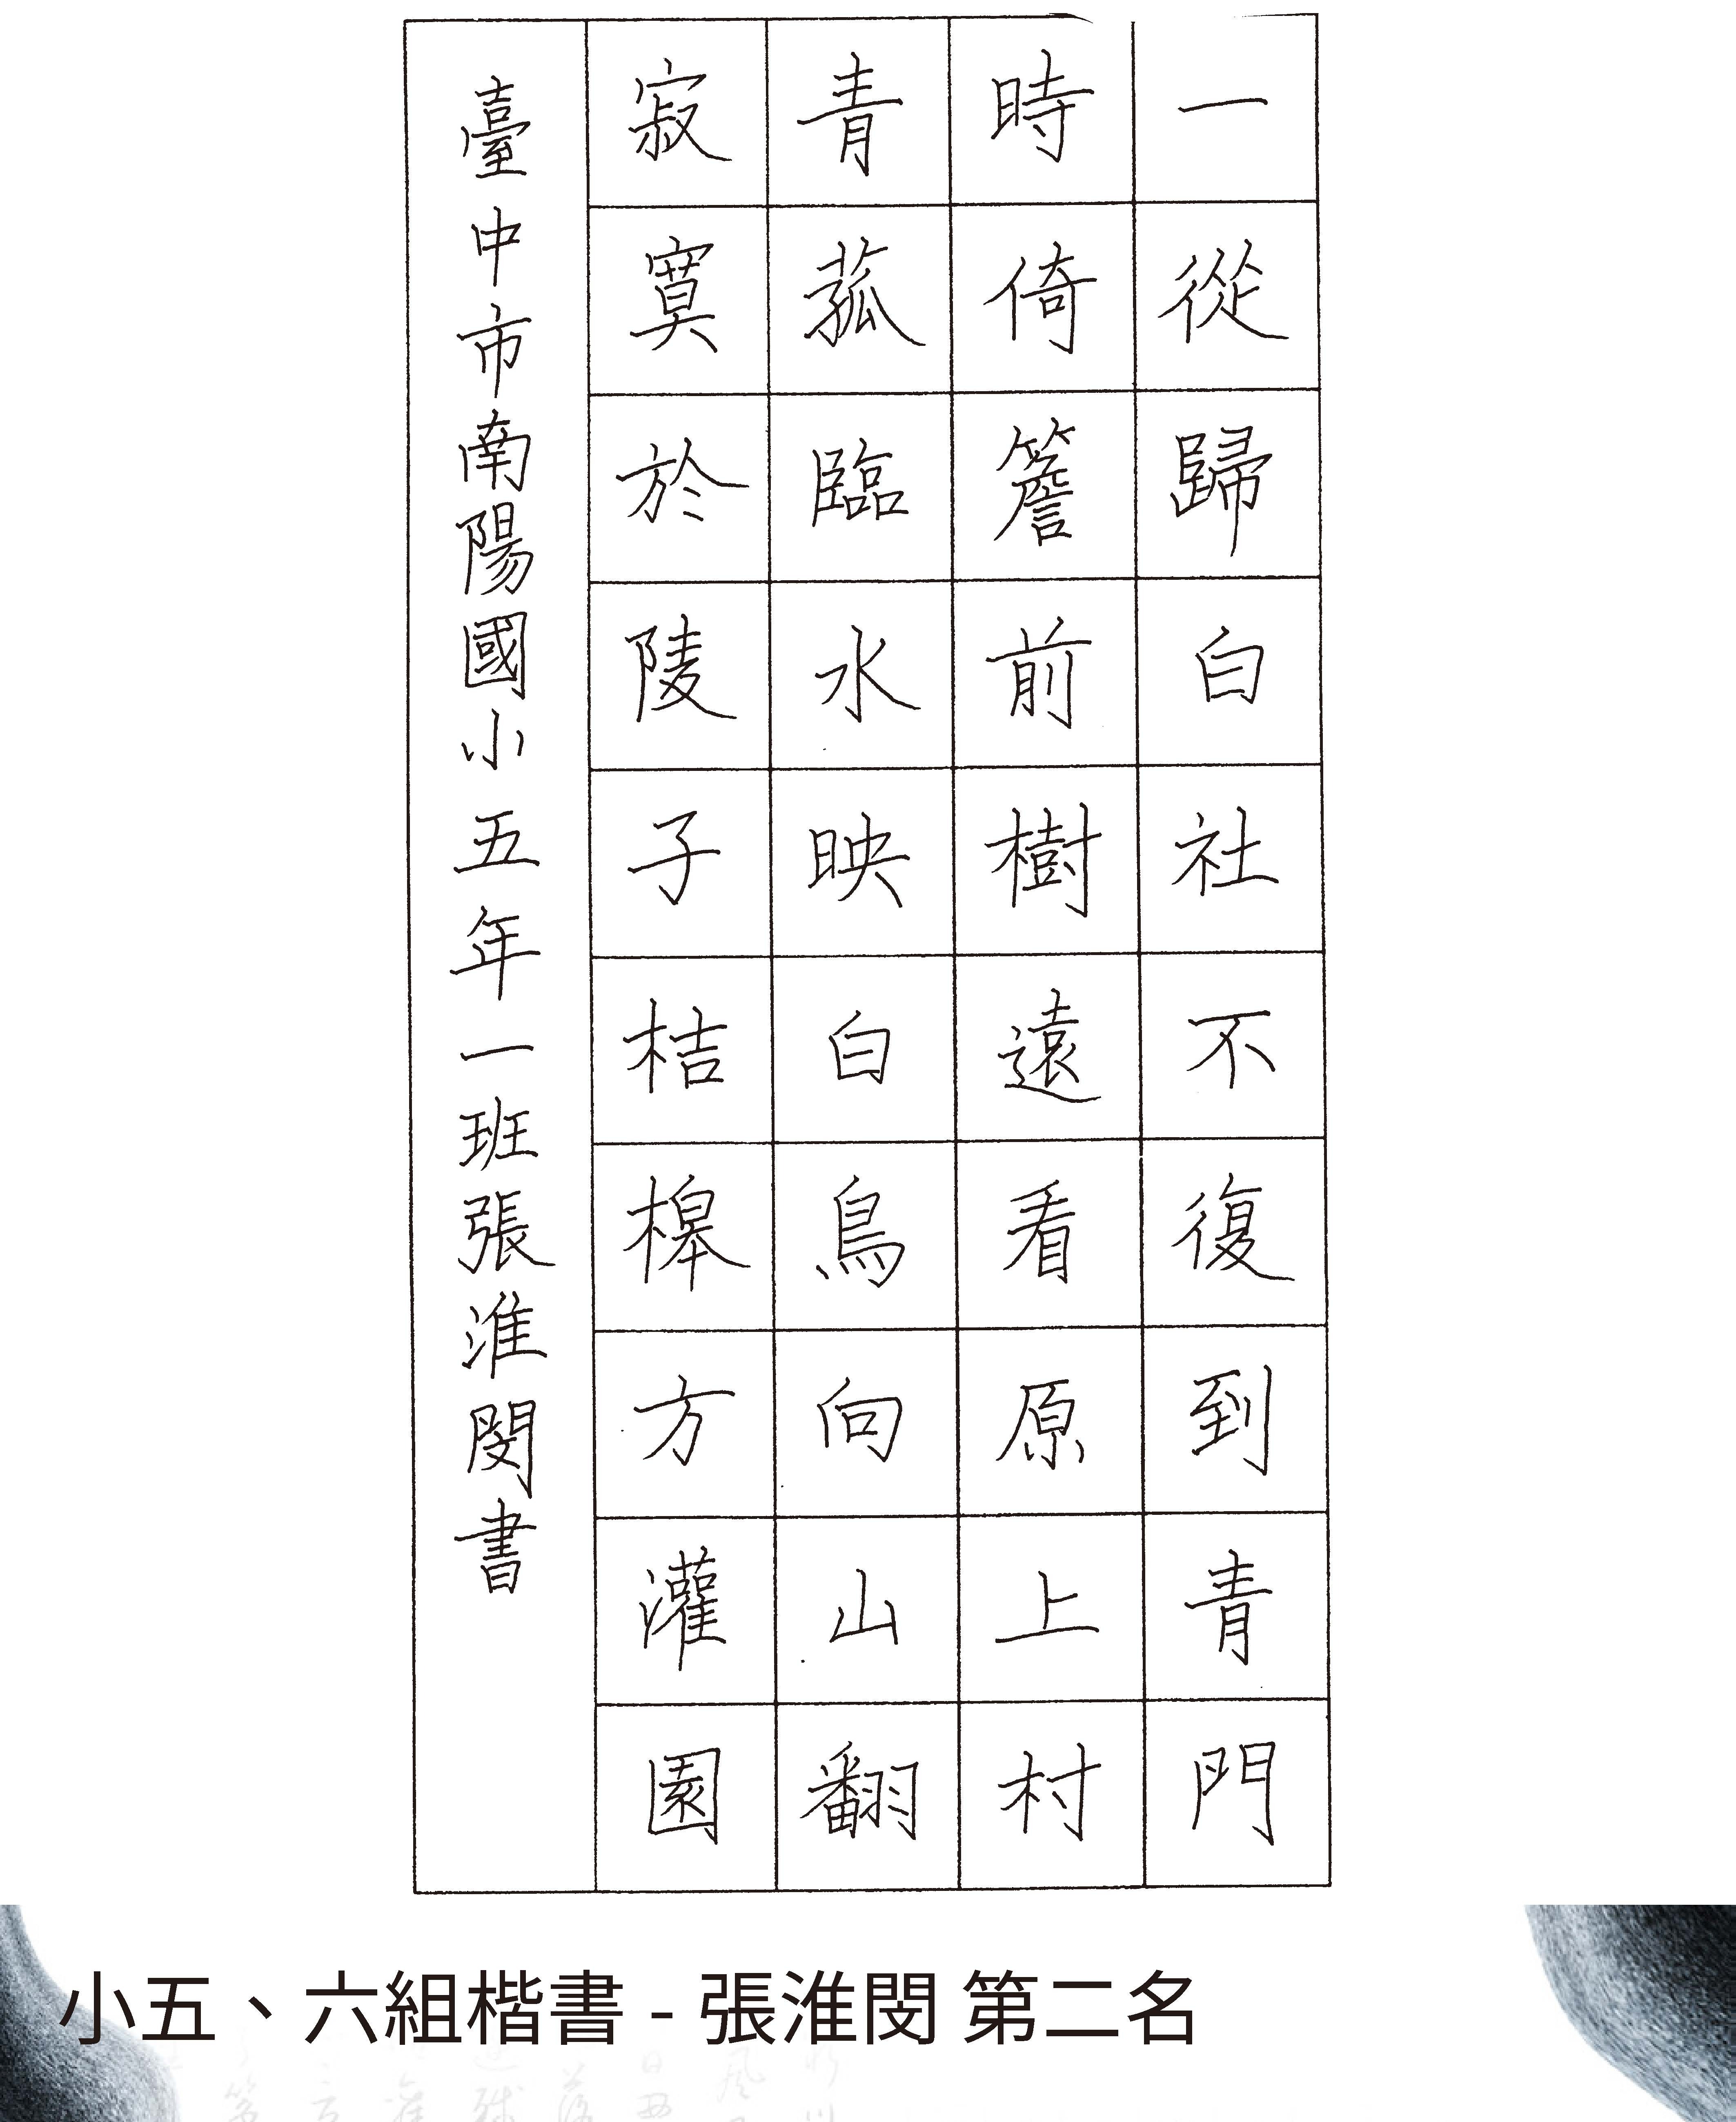 一從歸白社不復到青門
時倚簷前樹遠看原上村
青菰臨水映白鳥向山翻
寂寞於陵子桔槔方灌園
臺中市南陽國小五年一班張淮閔書
小五、六組楷書 - 張淮閔 第二名